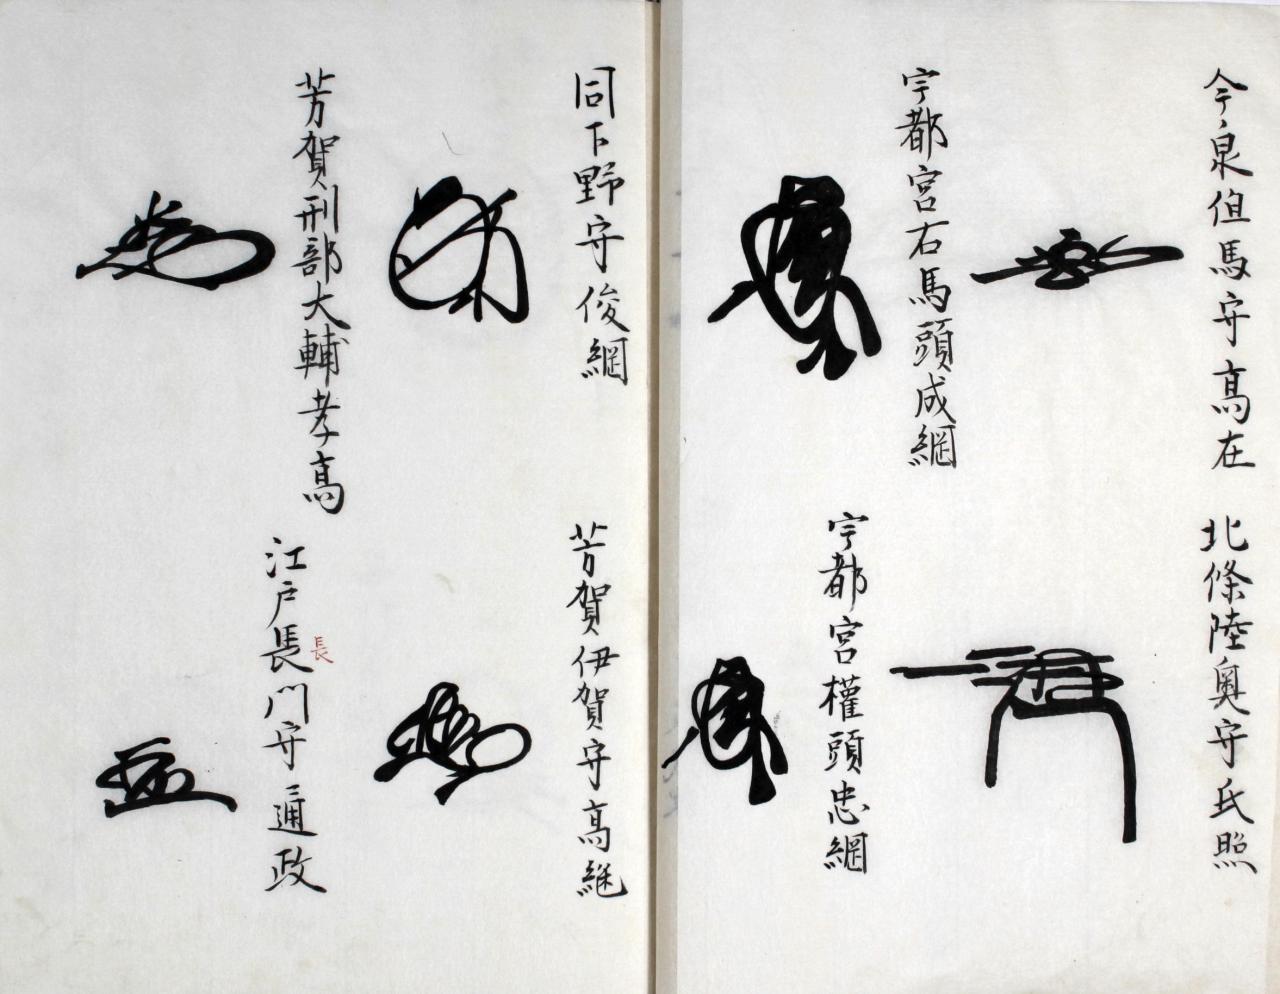 今泉但馬守高在
北條陸奥守氏照
宇都宮右馬頭成綱
宇都宮權頭忠綱
同下野守俊綱
芳賀伊賀守高継
芳賀刑部大輔孝高
江戸長門守通政
長